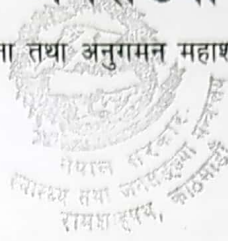 ा तथा अनुगमन महाश
नेपाल सरकार
स्वास्थ्य तथा जनसङ्ख्या मन्त्रालय
रामशाहपथ, काठमाडौं